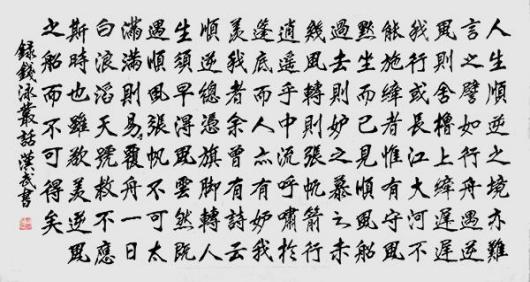 人生順逆之境亦難
言之譬如行舟遇逆
風則舍櫓上縴遲遲
我行或長江大河不
能施縴者惟有守風
默坐而已見順風船
過去則妒之慕之未
幾風轉則張帆箭行
逍遙乎中流呼嘯於
逢底而人亦有妒我
羨我者余曾有詩云
順逆總憑旗腳轉人
生須早得風雲然既
遇順風張帆不可太
滿滿則易覆舟一日
白浪滔天號救不應
斯時也雖欲羨逆風
之船而不可得矣
録錢泳叢話 漢民書